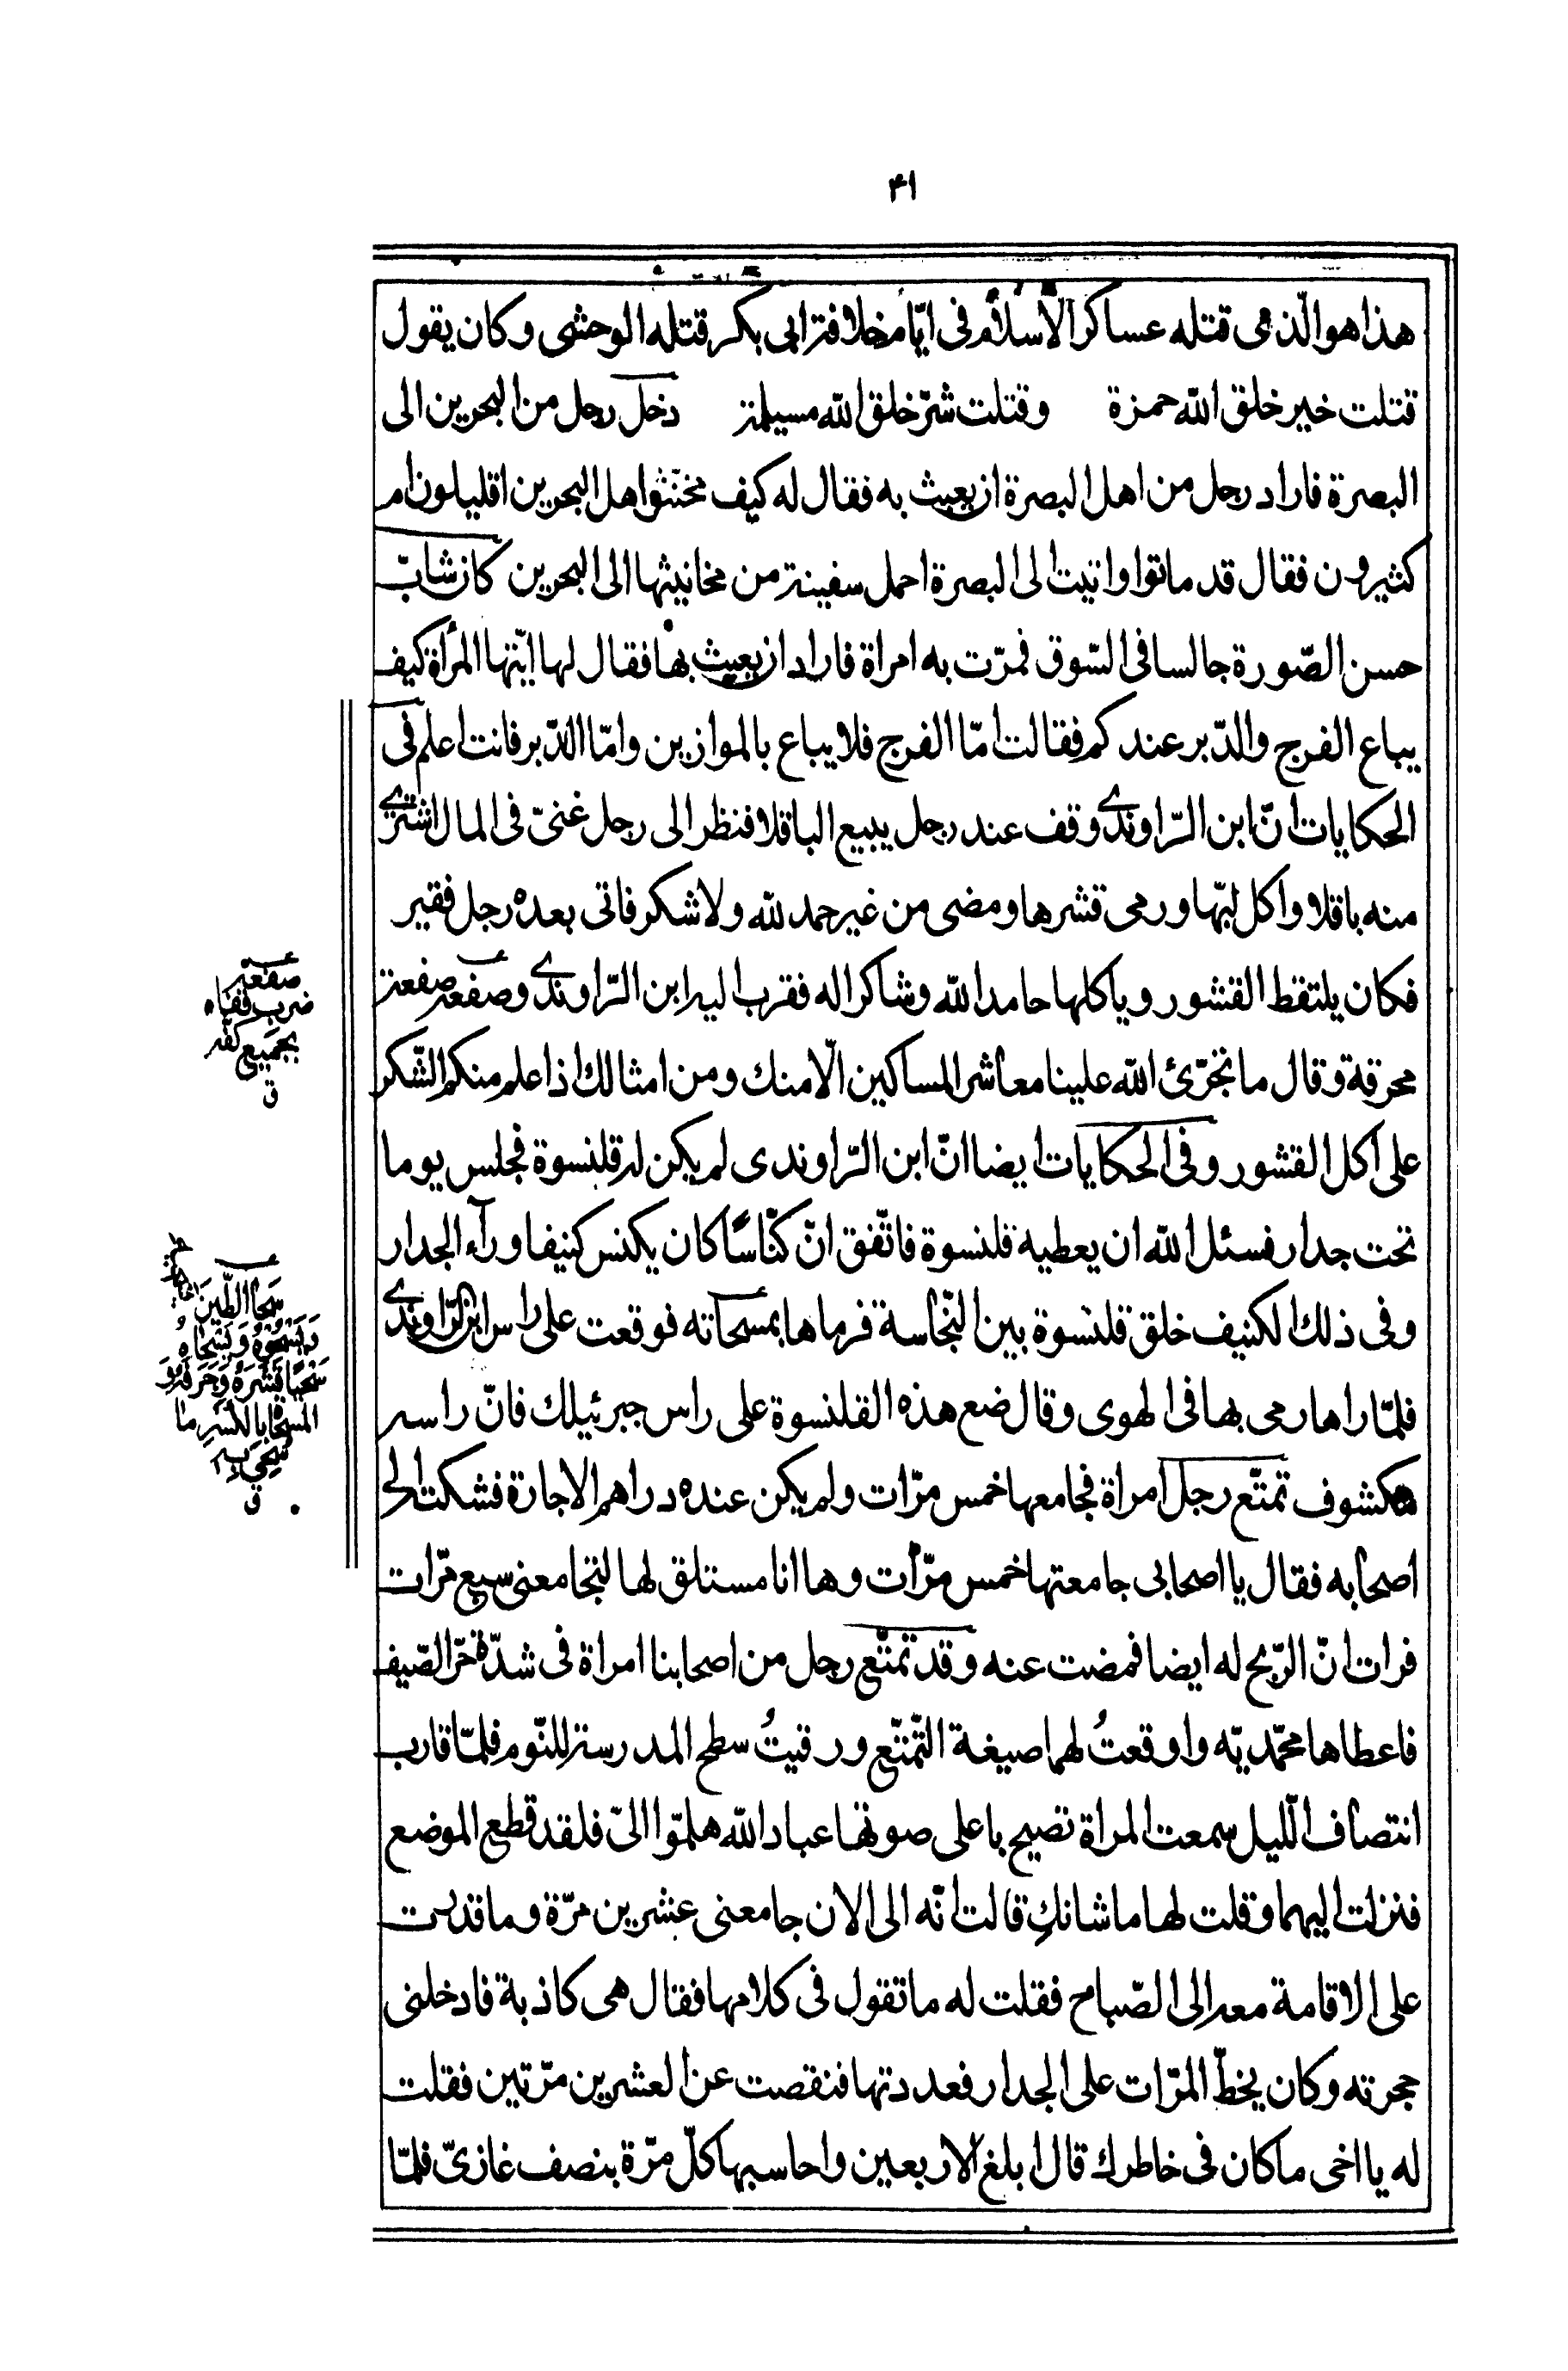 ٤١
هذا هو الّذی قتله عساكر الأسلام فی ایّام خلافة ابی بكر قتله الوحشی وكان یقول
قتلت خیر خلق الله حمزة وقتلت شرّ خلق الله مسیلمة دخل رجل من البحرین الی
البصرة فاراد رجل من اهل البصرة ان یعبث به فقال له كیف مخنّثوا اهل البحرین اقلیلون ام
كثیرون فقال قد ماتوا واتیت الی البصرة احمل سفینة من مخانیثها الی البحرین كان شابّ
حسن الصّورة جالسا فی السّوق فمرّت به امراة فاراد ان یعبث بها فقال لها ایّتها المرأة كیف
یباع الفرج والدّبر عندكم فقالت امّا الفرج فلا یباع بالموازین وامّا الدّبر فانت اعلم فی
الحكایات انّ ابن الرّاوندی وقف عند رجل یبیع الباقلا فنظر الی رجل غنیّ فی المال اشتری
منه باقلا واكل لبّها ورمی قشرها ومضی من غیر حمد لله ولا شكر فاتی بعده رجل فقیر
فكان یلتقط القشور ویاكلها حامدا لله وشاكرا له فقرب الیه ابن الرّاوندی وصفعه صفعة
محرقة وقال ما تجرّئ الله علینا معاشر المساكین الّا منك ومن امثالك اذا علم منكم الشّكر
علی اكل القشور وفی الحكایات ایضا انّ ابن الرّاوندی لم یكن له قلنسوة فجلس یوما
تحت جدار فسئل الله ان یعطیه قلنسوة فاتّفق انّ كنّاسًا كان یكنس كنیفا ورآء الجدار
وفی ذلك الكنیف خلق قلنسوة بین النّجاسة فرماها بمسحاته فوقعت علی راس ابن الرّاوندی
فلمّا راها رمی بها فی الهوی وقال ضع هذه القلنسوة علی راس جبرئیلك فانّ راسه
مكشوف تمتّع رجل امراة فجامعها خمس مرّات ولم یكن عنده دراهم الاجارة فشكت الی
اصحابه فقال یا اصحابی جامعتها خمس مرّات وها انا مستلق لها لتجامعنی سبع مرّات
فرات انّ الرّبح له ایضا فمضت عنه وقد تمتّع رجل من اصحابنا امراة فی شدّة حرّ الصّیف
فاعطاها محمّدیّه واوقعتُ لهما صیغة التّمتّع ورقیتُ سطح المدرسة للنّوم فلمّا قارب
انتصاف اللّیل سمعت المراة تصیح باعلی صوتها عباد الله هلمّوا الیّ فلقد قطع الموضع
فنزلت الیهما وقلت لها ما شانكِ قالت انّه الی الان جامعنی عشرین مرّة وما قدرت
علی الاقامة معه الی الصّباح فقلت له ما تقول فی كلامها فقال هی كاذبة فادخلنی
حجرته وكان یخطّ المرّات علی الجدار فعددتها فنقصت عن العشرین مرّتین فقلت
له یا اخی ما كان فی خاطرك قال ابلغ الاربعین واحاسبها كلّ مرّة بنصف غازیّ فلمّا
صفعه
ضرب قفاه
بجمیع كفّه
ق
سَحَا الطّینَ
یَسْحُوهُ وَیَسْحَاهُ
سَحْیًا قَشَرَهُ وَجَرَفَهُ وَ
المسحاة بالكسرِ ما
سُحِیَ به
ق